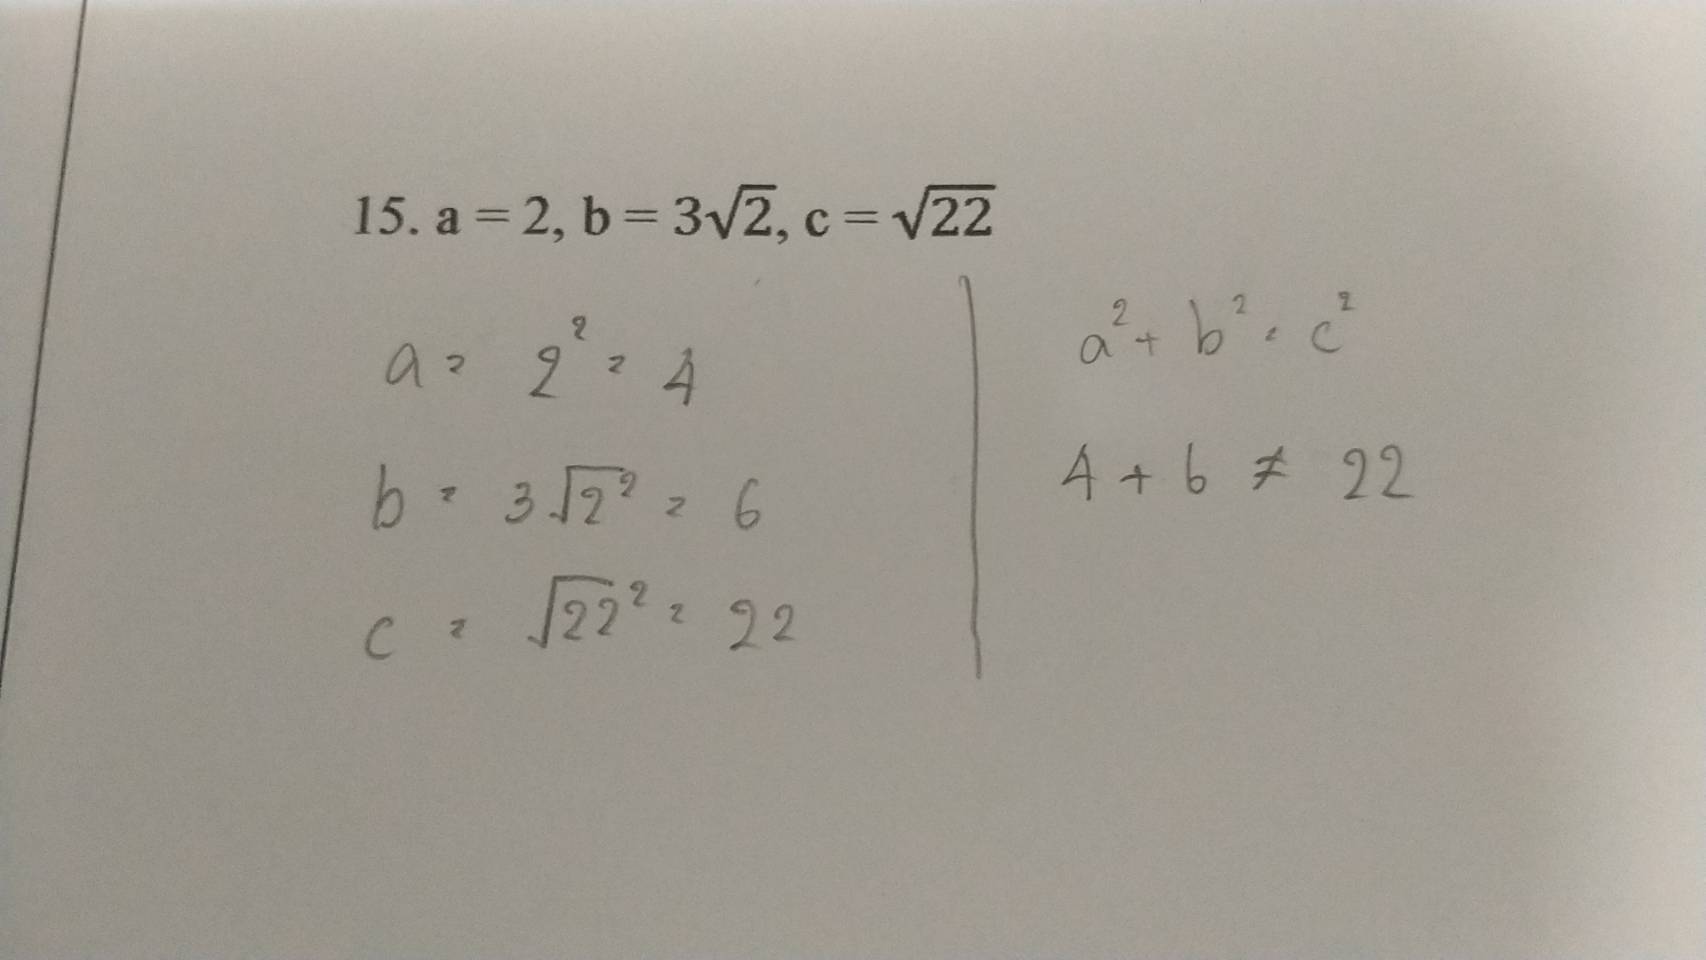 15. a = 2, b = 3√2, c = √22
a = 2² = 4
b = 3√2² = 6
c = √22² = 22
a² + b² = c²
4 + 6 ≠ 22